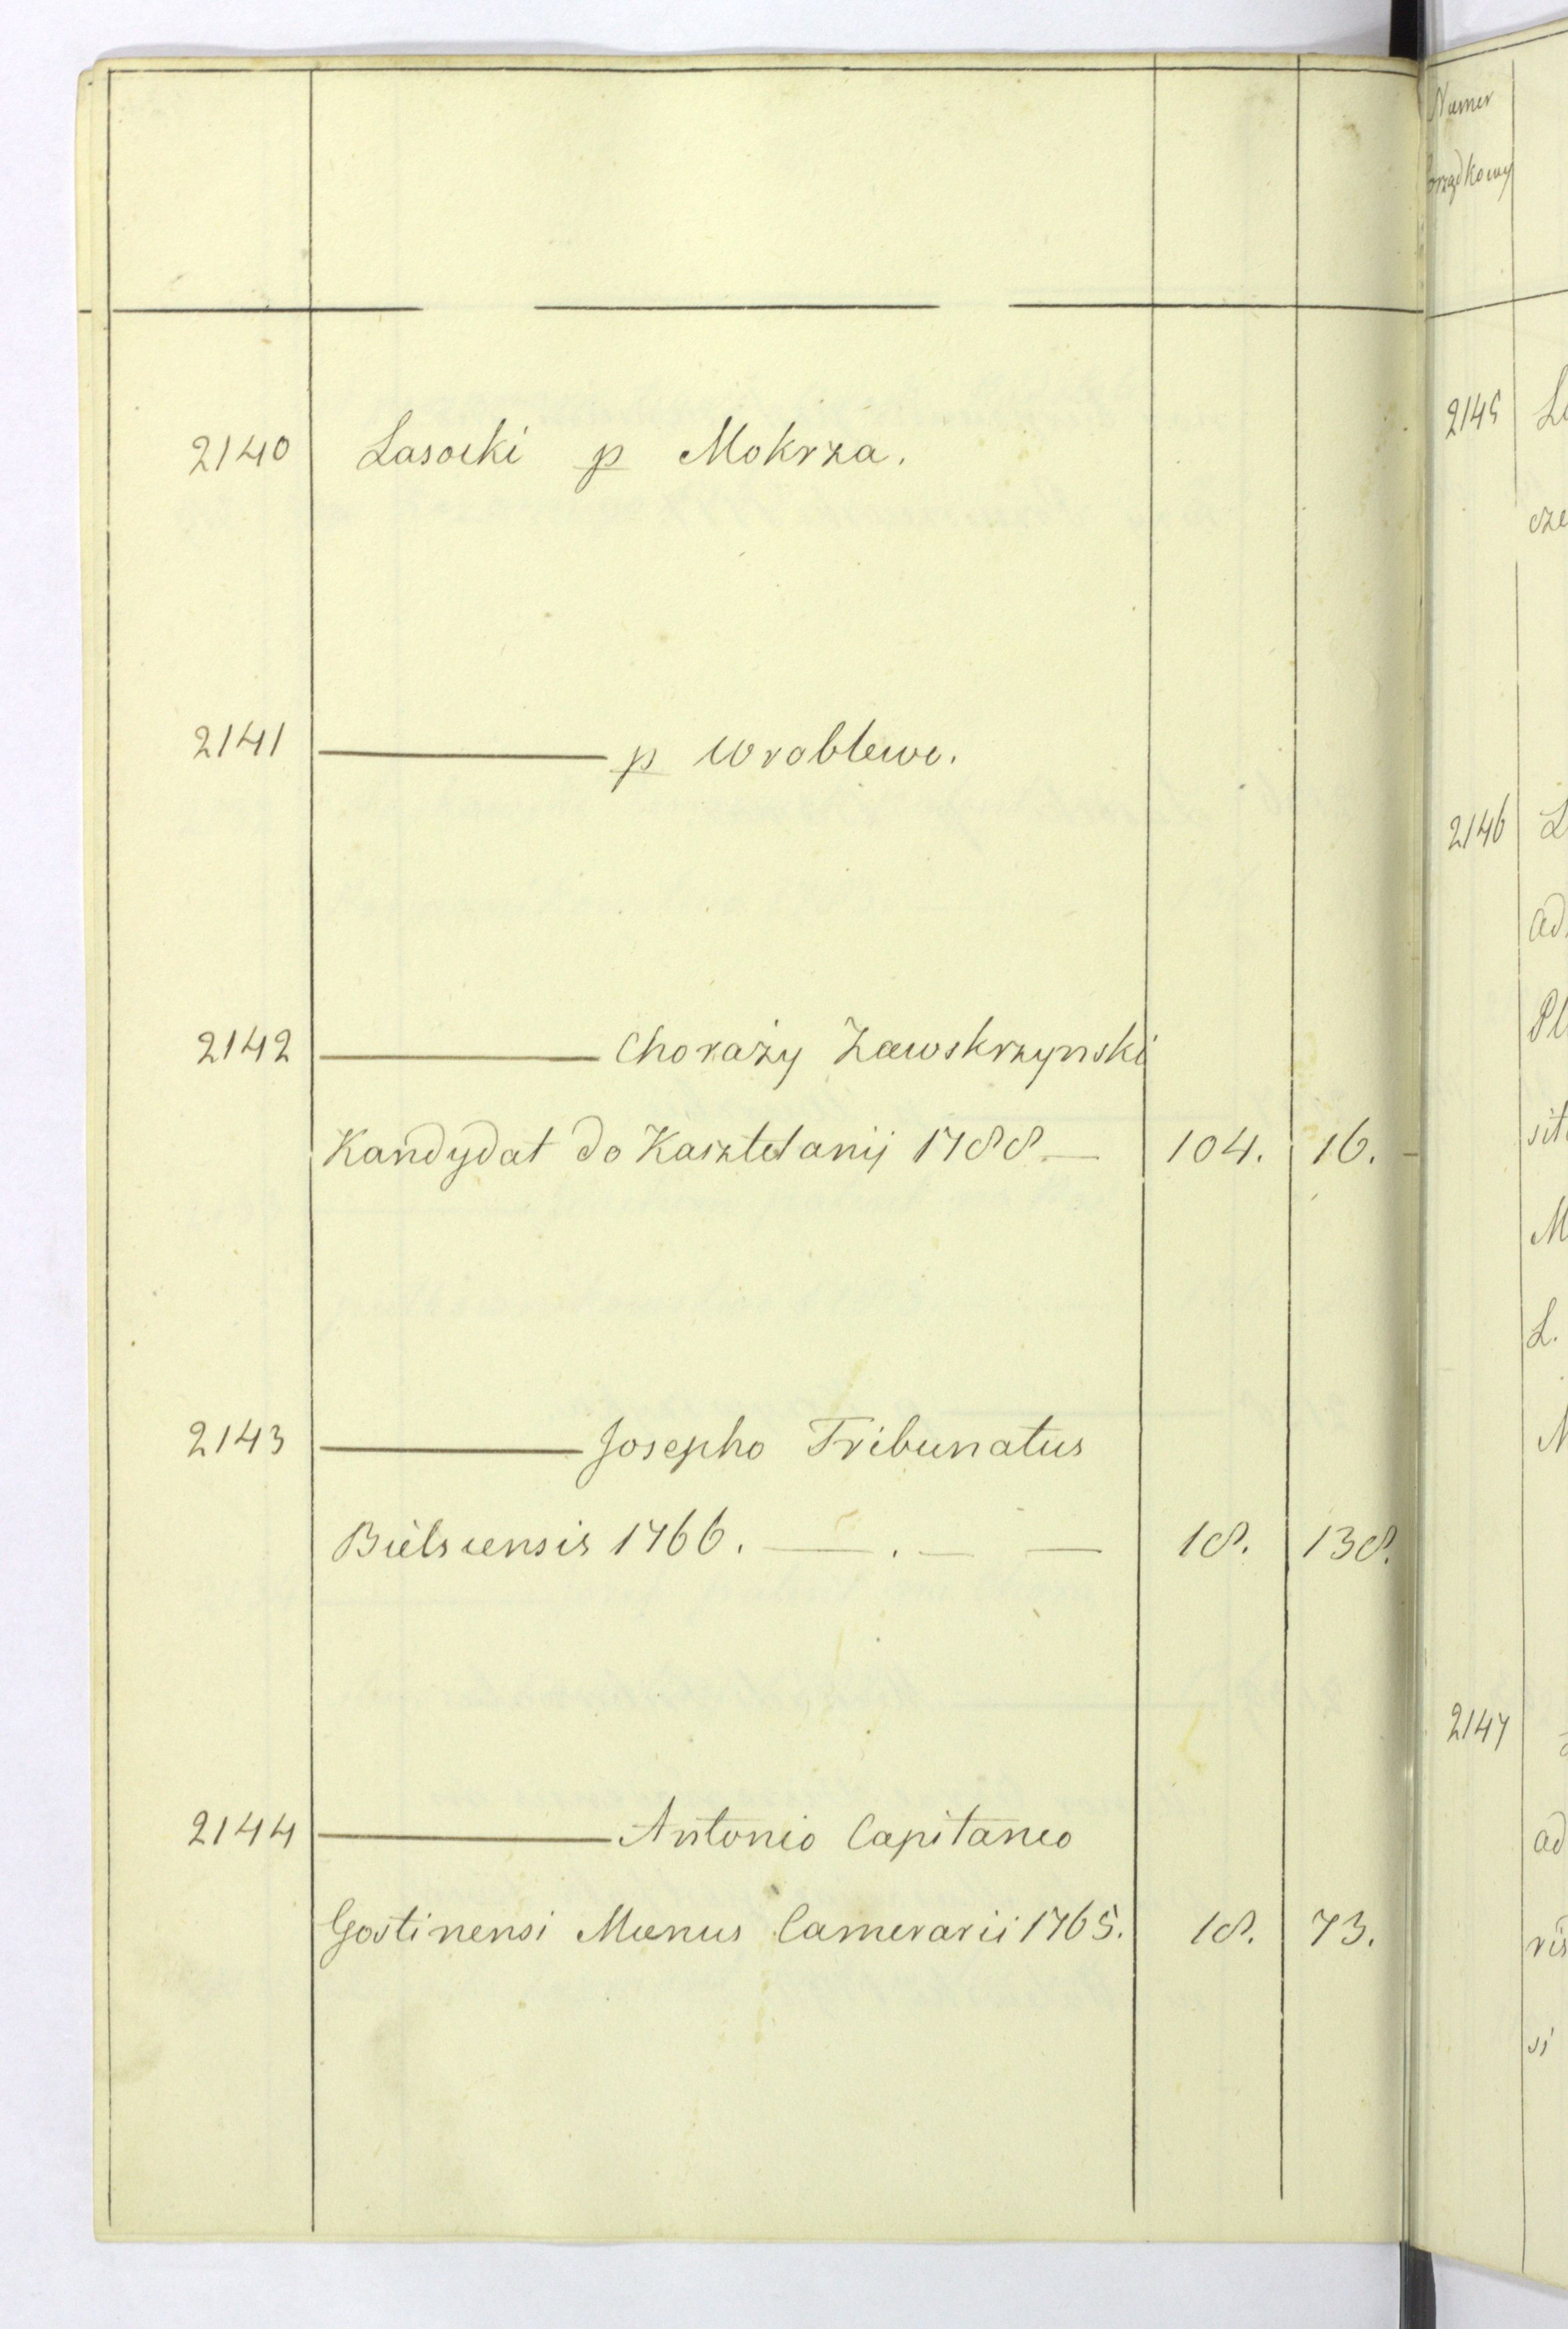 2140 Lasocki p Mokrza.
2141 ——— p Wroblewo.
2142 ——— Chorąży Zawskrzynski
Kandydat do Kasztelanij 1788 — 104. 16.
2143 ——— Josepho Tribunatus
Bielscensis 1766. — . — — 18. 138.
2144 ——— Antonio Capitaneo
Gostinensi Munus Camerarii 1765. 18. 73.
Numer
porządkowy
2145
2146
ad
Pl
sit
M
L.
2147
ad
ris
si